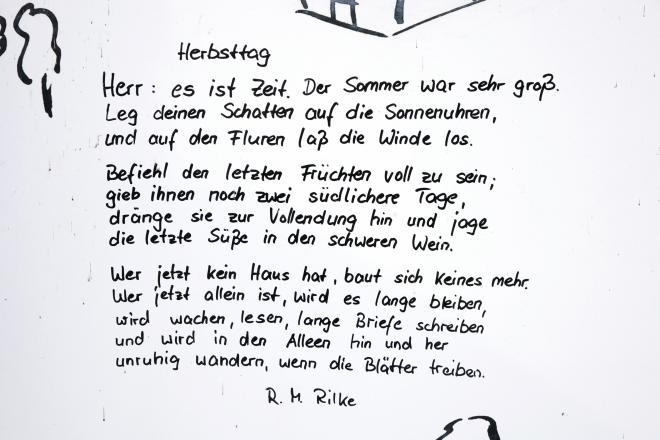 Herbsttag
Herr: es ist Zeit. Der Sommer war sehr groß.
Leg deinen Schatten auf die Sonnenuhren,
und auf den Fluren laß die Winde los.
Befiehl den letzten Früchten voll zu sein;
gieb ihnen noch zwei südlichere Tage,
dränge sie zur Vollendung hin und jage
die letzte Süße in den schweren Wein.
Wer jetzt kein Haus hat, baut sich keines mehr.
Wer jetzt allein ist, wird es lange bleiben,
wird wachen, lesen, lange Briefe schreiben
und wird in den Alleen hin und her
unruhig wandern, wenn die Blätter treiben.
R. M. Rilke